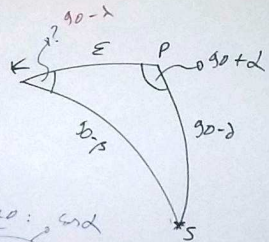 90-λ
?
K ε P 90+α
90-β 90-δ
S
cosα